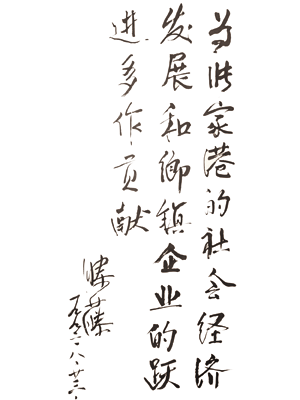 为张家港的社会经济
发展和乡镇企业的跃
进多作贡献
滕藤
一九九六·八·廿三·